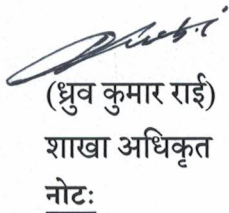 (ध्रुव कुमार राई)
शाखा अधिकृत
नोटः